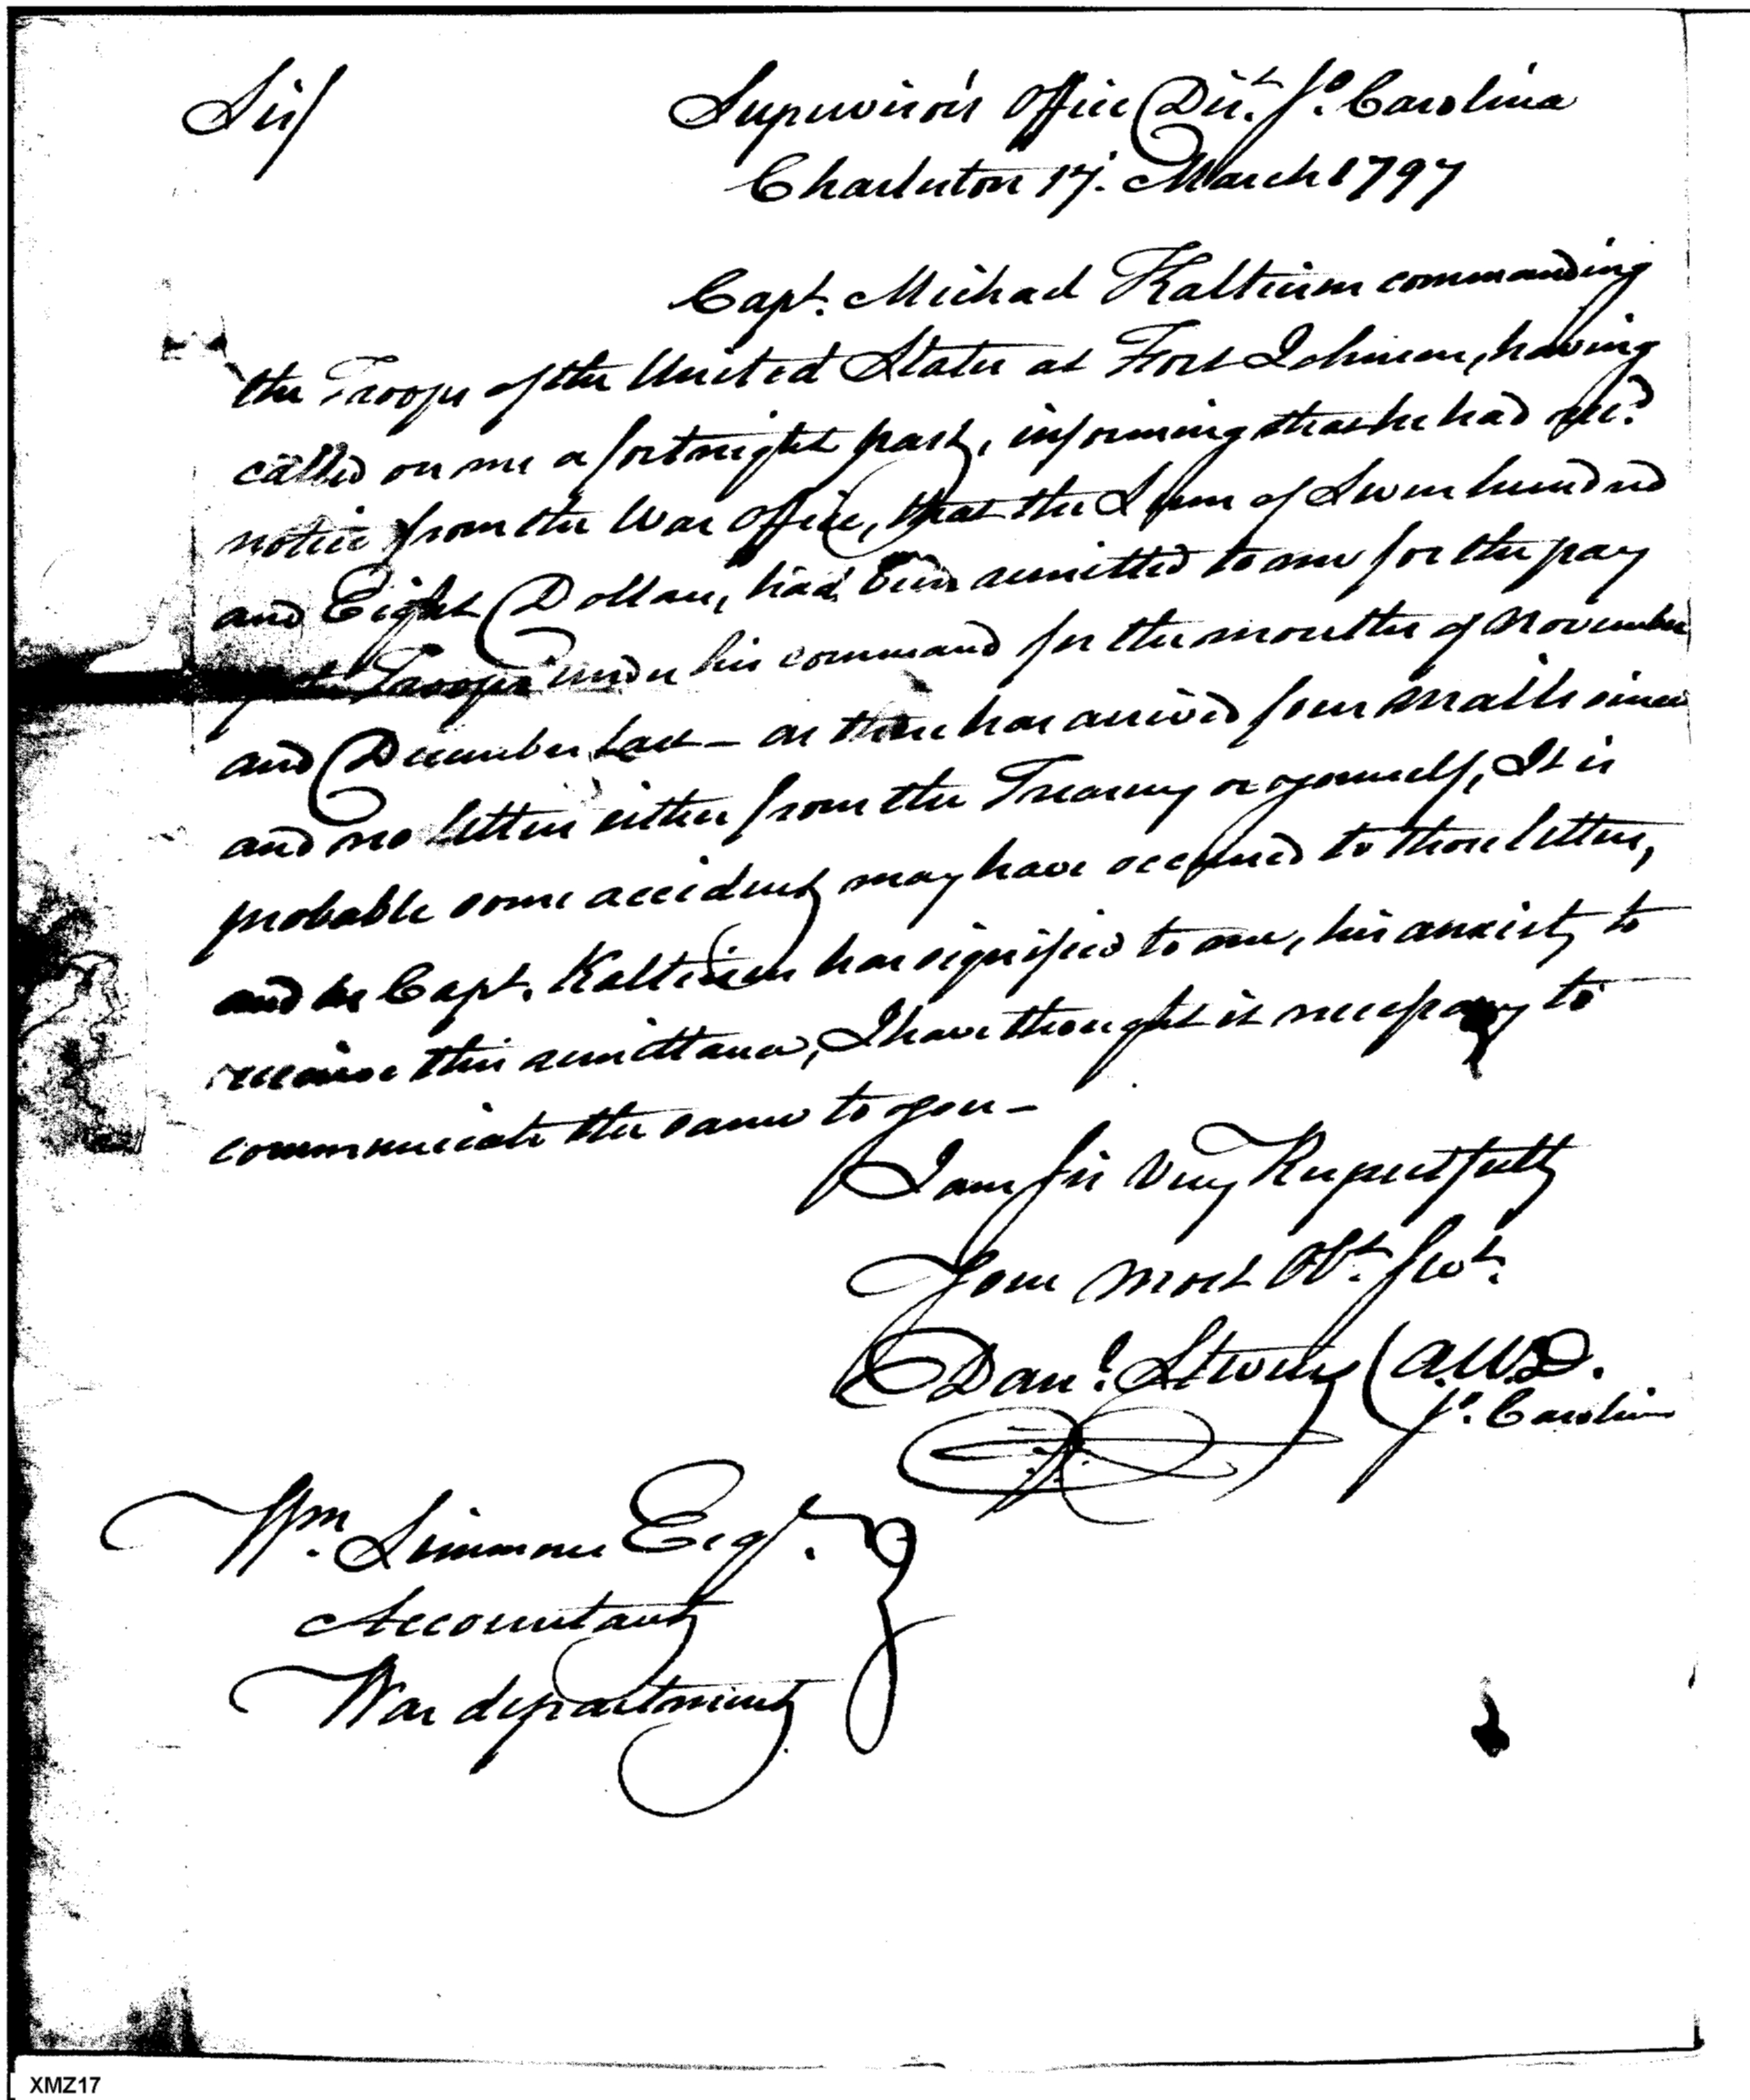 Sir/
Supervisor's Office Dist. So. Carolina
Charleston 17. March 1797
Capt. Michael Kalteisen commanding
the Troops of the United States at Fort Johnson, having
called on me a fortnight past, informing that he had rec'd
notice from the War Office, that the Sum of Seven hundred
and Eight Dollars, had been remitted to me for the pay
of the Troops under his command for the months of November
and December last – as there has arrived four Mails since
and no letters either from the Treasury or yourself, It is
probable some accident may have occurred to those letters,
and as Capt. Kalteisen has signified to me, his anxiety to
receive this remittance, I have thought it necessary to
communicate the same to you –
I am Sir Very Respectfully
Your Most Obt. Servt.
Danl. Stevens (A.W.D.
So. Carolina
Wm. Simmons Esqr.
Accountant
War department
XMZ17